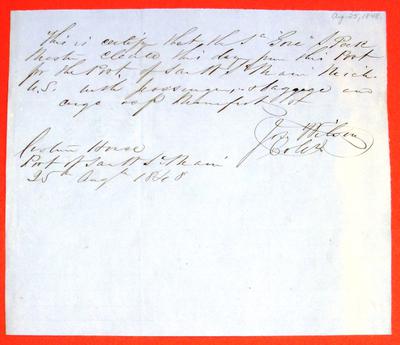 Aug. 25, 1848.
This is certify that the Str Gore S. Peck
Master cleared this day from this Port
for the Port of Sault Ste Marie Mich:
U.S. with passengers: baggage and
cargo as pr
Jos Wilson
Collr
Custom House
Port of Sault Ste Marie
25th Augt 1848